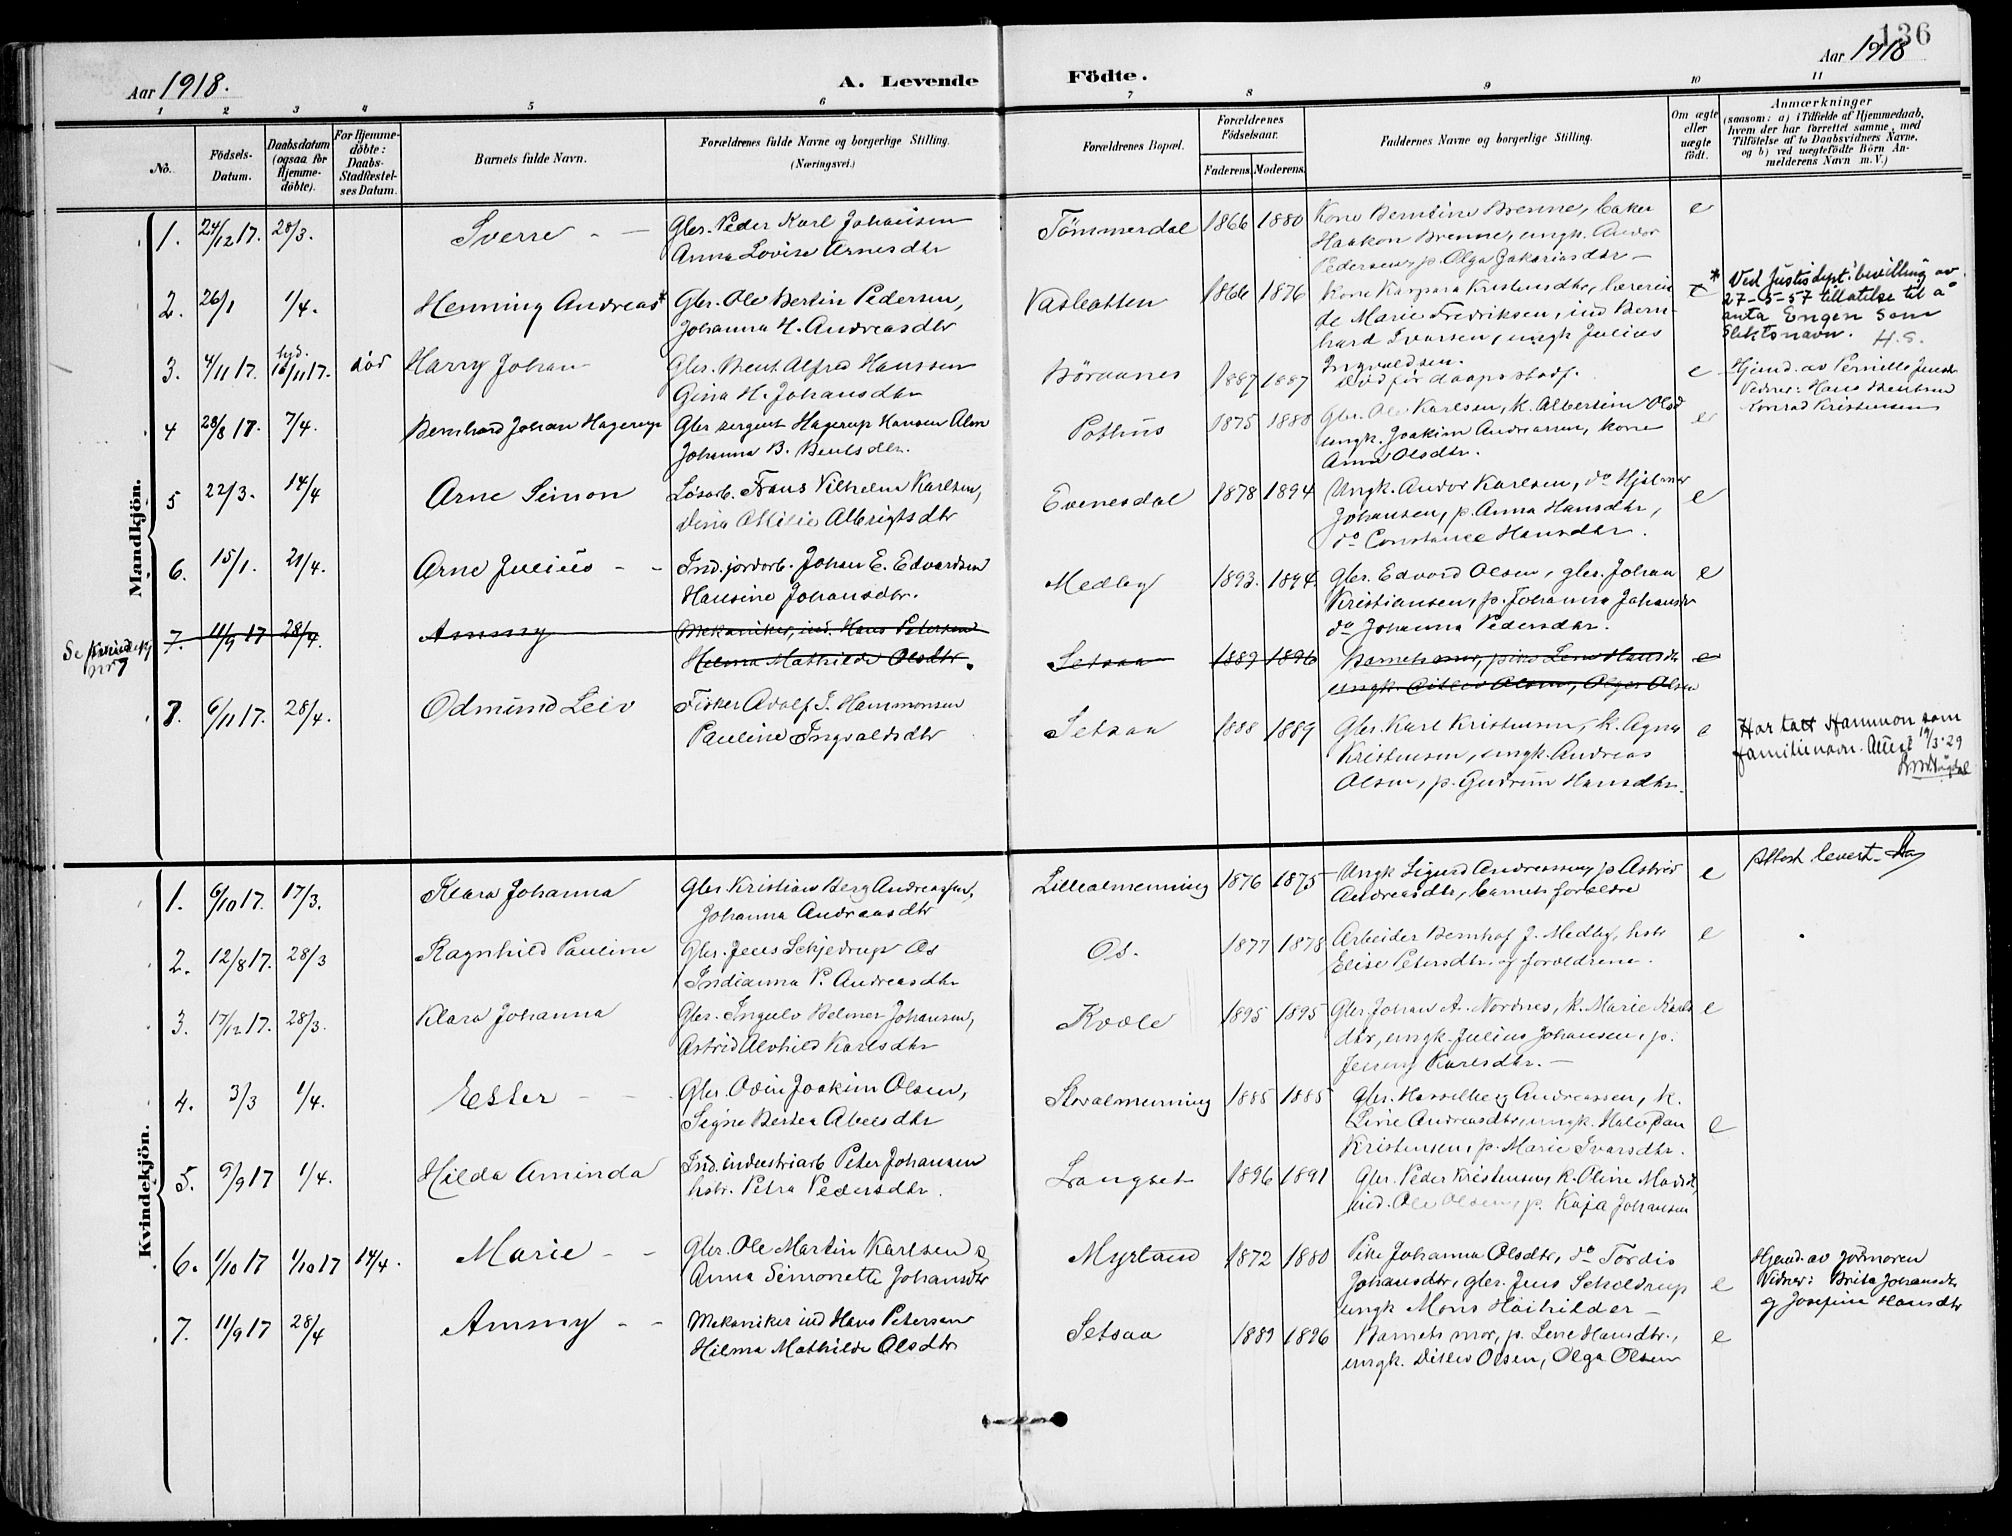 136
Aar 1918.
A. Levende
Födte.
Aar 1918
1 2 3 4 5 6 7 8 9 10 11
No.
Födsels-Datum.
Daabsdatum (ogsaa for Hjemme-döbte).
For Hjemme-döbte: Daabs-Stadfæstel-ses Datum.
Barnets fulde Navn.
Forældrenes fulde Navne og borgerlige Stilling. (Næringsvei.)
Forældrenes Bopæl.
Forældrenes Födselsaar.
Faderens. Moderens.
Faddernes Navne og borgerlige Stilling.
Om ægte eller uægte födt.
Anmærkninger
(saasom: a) i Tilfælde af Hjemmedaab, hvem der har forrettet samme, med Tilföielse af to Daabsvidners Navne, og b) ved uægtefödte Börn An-melderens Navn m. V.)
Mandkjön.
1. 24/12 17. 28/3. Sverre - — Gbr. Peder Karl Johansen Tömmerdal 1866 1880 Kone Berntine Brenne, baker e
Anna Lovise Arnesdtr Haakon Brenne, ungk. Andor
Pedersen, p. Olga Zakariasdtr —
2. 26/1 1/4. Henning Andreas* Gbr. Ole Bertin Pedersen, Vasbotten 1866 1876 Kone Kaspara Kristensdtr, lærerin e * Ved Justisdept.' bevilling av
Johanna H. Andreasdtr de Marie Fredriksen, ind Bern- 27-5-57 tillatelse til å
hard Ivarsen, ungk Julius anta Engen som
Ingvaldsen. slektsnavn. H.S.
3. 4/11 17. hjd. 16/11 17. död Harry Johan Gbr. Bent Alfred Hanssen Börvanes 1887 1887 Död för daapsstadf. e Hjemd. av Pernille Jensdtr
Gina H. Johansdtr Vidner: Hans Bentsen
Konrad Kristensen
4 28/8 17. 7/4. Bernhard Johan Hagerup Gbr sergent Hagerup Hansen Alm Pothus 1875 1888 Gbr. Ole Karlsen, k. Albertine Olsd e
Johanna B. Bentsdtr. ungk. Joakim Andreassen, kone
Anna Olsdtr.
5 22/3. 14/4 Arne Simon Lösarb. Frans Vilhelm Karlsen, Evenesdal 1878 1894 Ungk. Andor Karlsen, do Hjalmar e
Dina Otilie Albrigtsdtr Johansen, p. Anna Hansdtr,
do Constance Hansdtr.
6. 15/1. 21/4. Arne Julius - - Ind. jordarb. Johan E. Edvardsen Medby 1893. 1894 Gbr. Edvard Olsen, gbr. Johan e
Hansine Johansdtr. Kristiansen, p. Johanna Johansdtr
do Johanna Pedersdtr.
Se kvindekj nr 7
7. 11/9 17 28/4. Ammy Mekaniker, ind. Hans Petersen
Helma Mathilde Olsdtr. Setsaa 1889 1896 Barnets mor, pike Lene Hansdtr e
ungk. Ditlev Olsen, Olga Olsen
7. 6/11 17. 28/4. Odmund Leiv Fisker Adolf J. Hammonsen Setsaa 1888 1889 Gbr. Karl Kristensen, k. Agna e Har tatt Hammon som
Pauline Ingvaldsdtr Kristensen, ungk. Andreas familienavn. Attest 19/3-29
Olsen, p. Gudrun Hansdtr.
Kvindekjön.
1. 6/10 17. 17/3. Klara Johanna Gbr Kristian Berg Andreassen, Lillealmenning 1876 1875 Ungk Sigurd Andreassen, p Astrid e Attest levert.
Johanna Andreasdtr Andreasdtr, barnets forældre
2. 12/8 17. 28/3 Ragnhild Pauline Gbr. Jens Schjedrup Os Os. 1877 1878 Arbeider Bernhof J. Medby, hstr e
Indianna P. Andreasdtr Elise Petersdtr. og forældrene.
3. 17/12 17. 28/3. Klara Johanna Gbr. Ingulv Velmer Johansen, Kvæle 1895 1895 Gbr. Johan A. Nordnes, k. Marie Karls e
Astrid Alvhild Karlsdtr dtr, ungk. Julius Johansen, p.
Jenny Karlsdtr. —
4. 3/3 1/4. Ester - - Gbr. Odin Joakim Olsen, Storalmenning 1885 1885 Gbr. Hasselberg Andreassen, k.
Signe Bertea Abelsdtr Line Andreasdtr, ungk. Halvdan e
Kristensen, p. Marie Ivarsdtr.
5. 9/9 17 1/4. Hilda Aminda Ind. industriarb Peter Johansen Langset 1896 1891 Gbr. Peder Kristensen, k. Oline Madsd,
hstr. Petra Pedersdtr. ind. Ole Olsen, p. Kaja Johansen
6. 1/10 17 1/10 17 14/4. Marie - - Gbr. Ole Martin Karlsen & Myrland 1872 1880 Pike Johanna Olsdtr, do Tordis Hjemd. av jormoren
Anna Simonette Johansdtr Johansdtr, gbr. Jens Scheldrup e Vidner: Brita Johansdtr
ungk Mons Höihilder — og Josefine Hansdtr
7. 11/9 17 28/4 Ammy - - Mekaniker ind Hans Petersen Setsaa 1889 1896 Barnets mor, p. Lene Hansdtr., e
Hilma Mathilde Olsdtr ungk. Ditlev Olsen, Olga Olsen